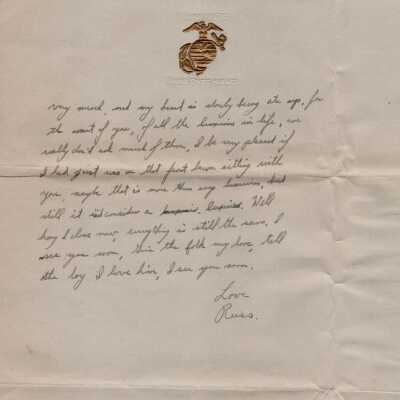 very much, and my heart is slowly being ate up, for
the want of you, of all the luxuries in life, we
really don't ask much of them, I be very pleased if
I had just was on that front lawn sitting with
you, maybe that is more than any luxuries, but
still it is consider a luxuries. Well
hony I close now, everything is still the same, I
see you soon, Give the folk my love, tell
the boy I love him, I see you soon.
Love
Russ.